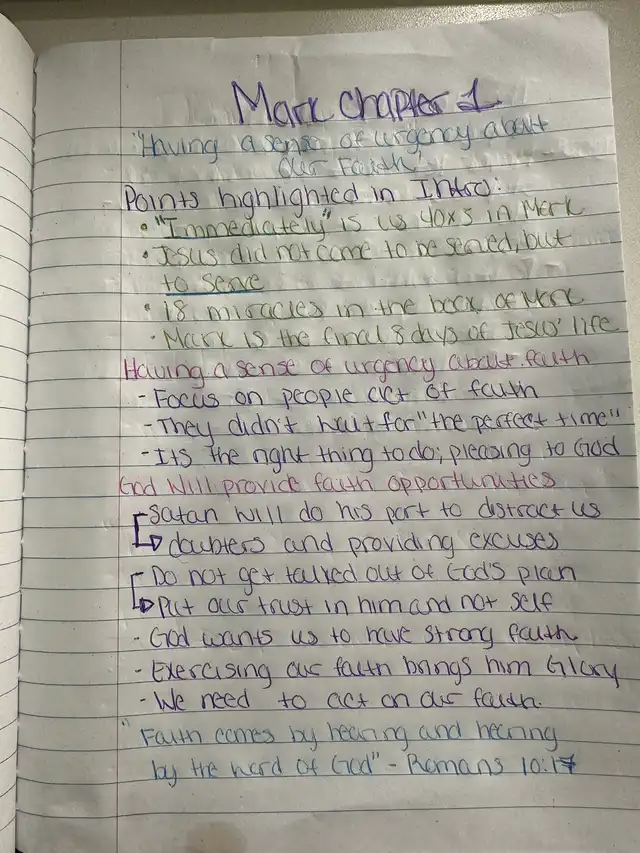 Mark Chapter 1
"Having a sense of urgency about
our Faith"
Points highlighted in Intro:
• "Immediately" is us 40xs in Mark
• Jesus did not come to be served, but
to serve
• 18 miracles in the book of Mark
• Mark is the final 8 days of Jesus' life
Having a sense of urgency about faith
- Focus on people act of faith
- They didn't wait for "the perfect time"
- Its the right thing to do; pleasing to God
God will provide faith opportunities
Satan will do his part to distract us
doubters and providing excuses
Do not get talked out of God's plan
Put our trust in him and not self
- God wants us to have strong faith
- Exercising our faith brings him Glory
- We need to act on our faith.
"Faith comes by hearing and hearing
by the word of God" - Romans 10:17